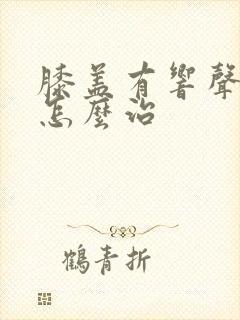 膝盖有響聲
怎麼治
鶴青折